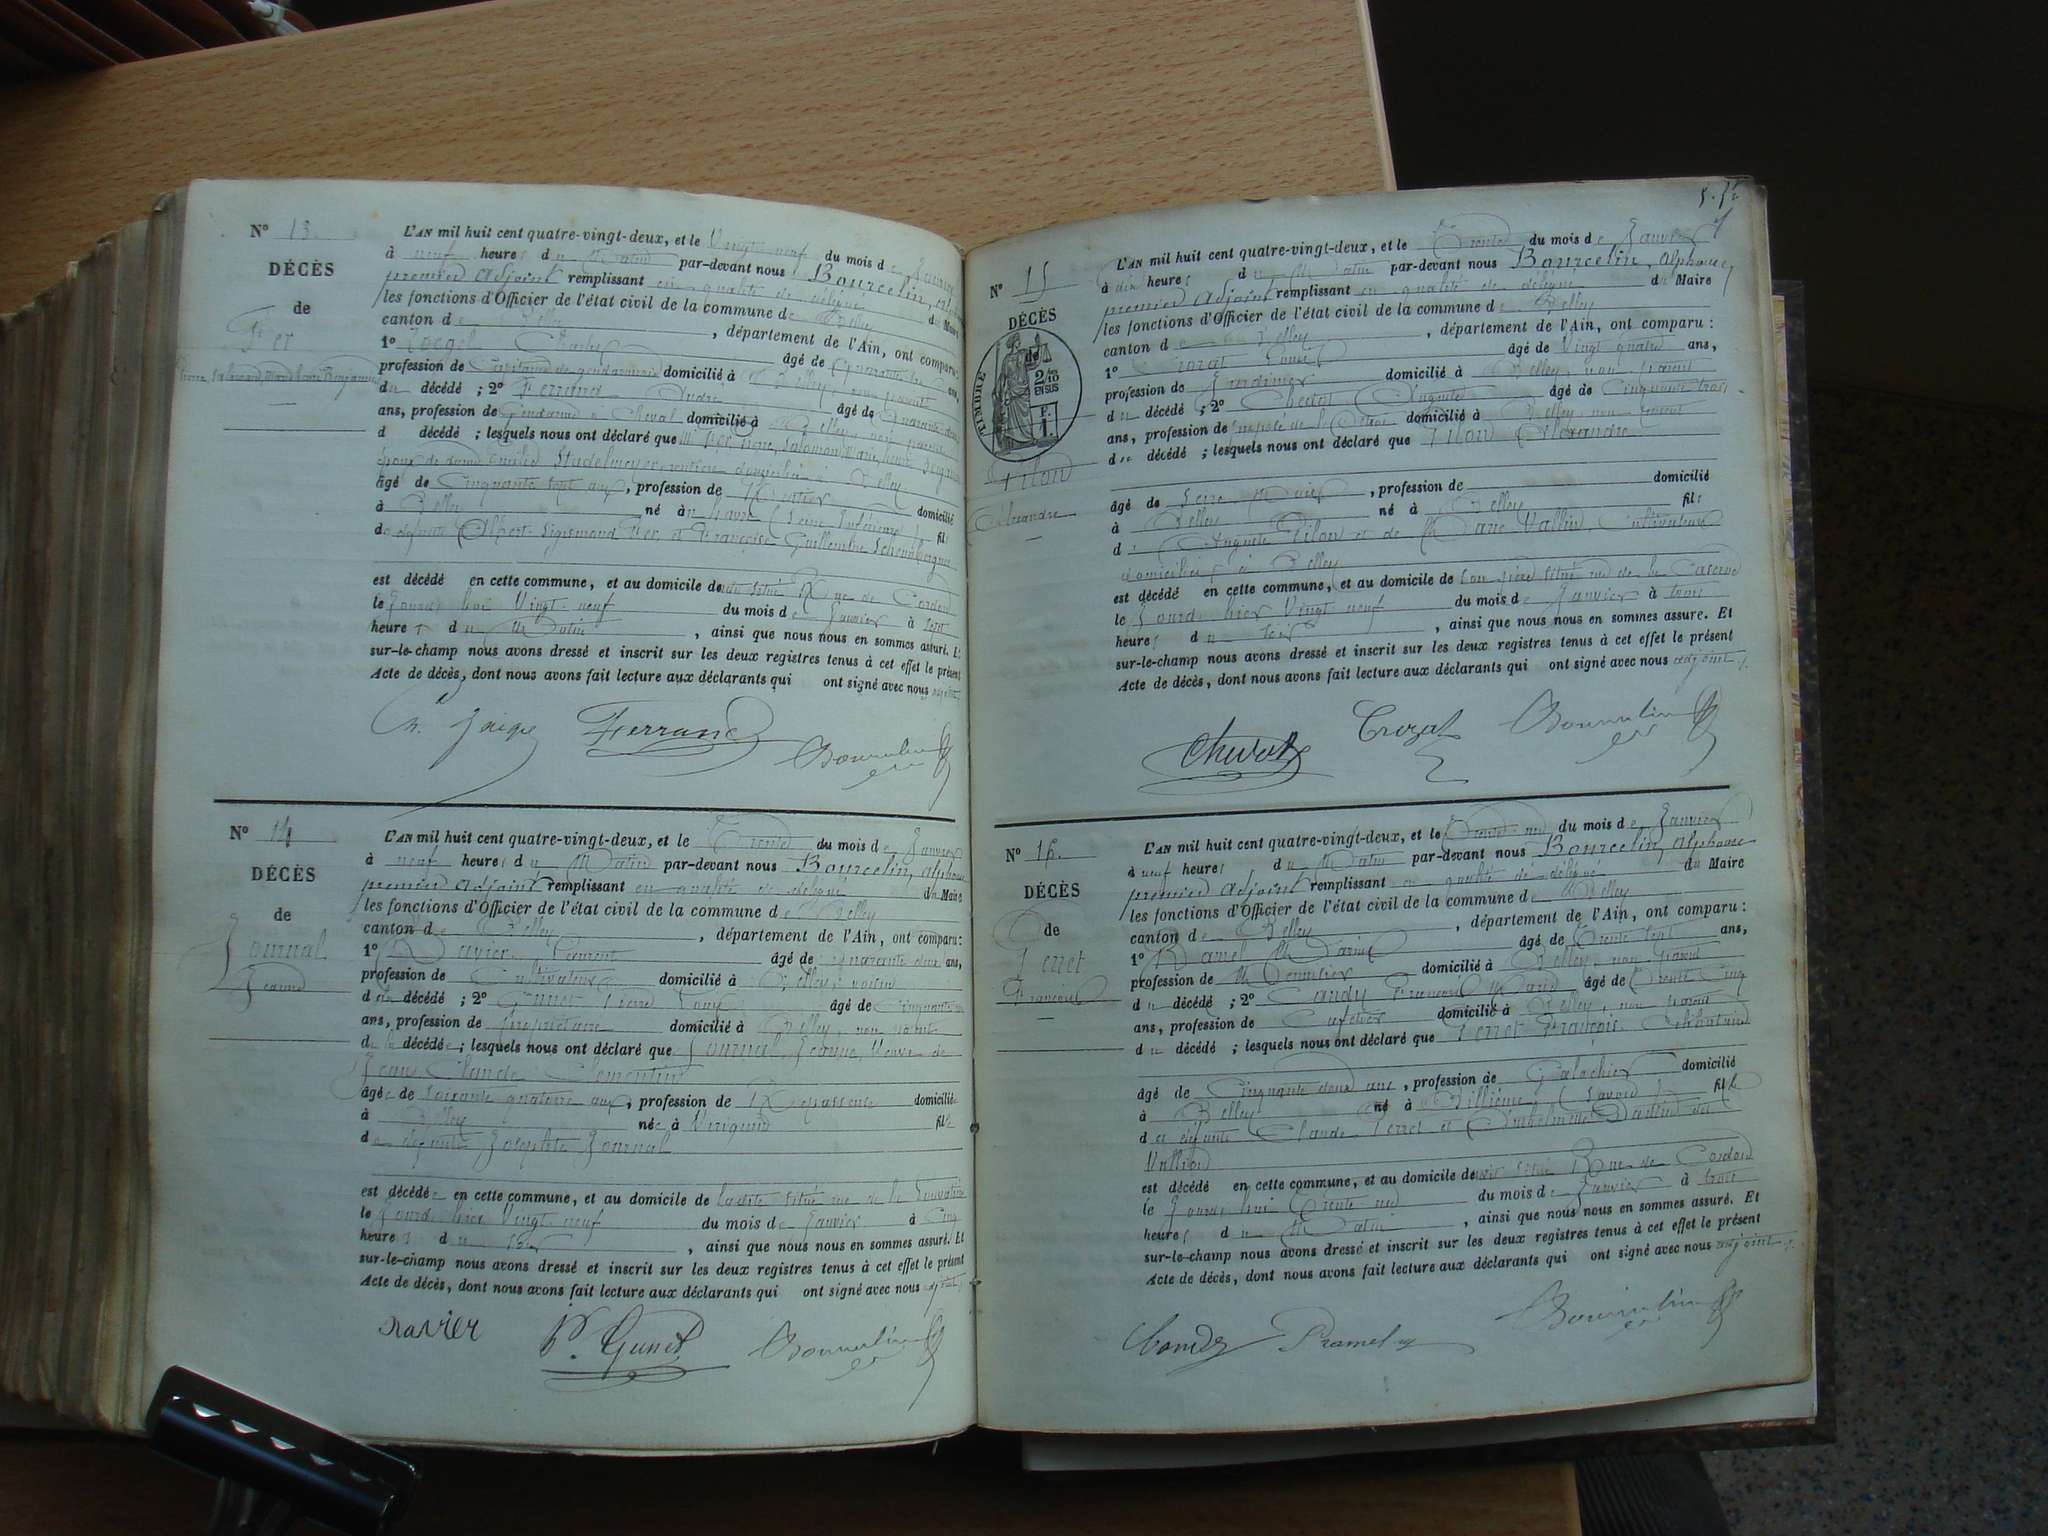 N° 13.
DÉCÈS
de
Fer
Pierre Salomond, Marie Louis Benjamin
L'AN mil huit cent quatre-vingt-deux, et le Vingt-neuf du mois de Janvier
à neuf heures du Matin par-devant nous Bourcelin,
premier adjoint remplissant en qualité de délégué du Maire
les fonctions d'Officier de l'état civil de la commune de Belley
canton de Belley, département de l'Ain, ont comparu:
1° Charles âgé de Quarante ans,
profession de Capitaine de gendarmerie domicilié à Belley, non parent
du décédé; 2° Ferrand André âgé de Quarante
ans, profession de Gendarme à Cheval domicilié à Belley, non parent
d décédé; lesquels nous ont déclaré que Fer Pierre, Salomon, Marie, Louis Benjamin
époux de dame Emilie Stadelmeyer, rentière domiciliée à Belley
âgé de Cinquante sept ans, profession de Rentier domicilié
à Belley né au havre (Seine Inférieure) fils
de défunts Albert Sigismond Fer, et Françoise Guillemine
est décédé en cette commune, et au domicile de situé Rue de Cordon
le Jourd'hui Vingt-neuf du mois de Janvier à sept
heures du Matin, ainsi que nous nous en sommes assuré. Et
sur-le-champ nous avons dressé et inscrit sur les deux registres tenus à cet effet le présent
Acte de décès, dont nous avons fait lecture aux déclarants qui ont signé avec nous adjoint
Ferrand
N° 14
DÉCÈS
de
Journal
Jeanne
L'AN mil huit cent quatre-vingt-deux, et le Trente du mois de Janvier
à neuf heures du Matin par-devant nous Bourcelin, Alphonse
premier adjoint remplissant en qualité de délégué du Maire
les fonctions d'Officier de l'état civil de la commune de Belley
canton de Belley, département de l'Ain, ont comparu:
1° Ravier Laurent âgé de quarante deux ans,
profession de Cultivateur domicilié à Belley, voisin
de la décédé; 2° Gunet Pierre Louis âgé de Cinquante
ans, profession de propriétaire domicilié à Belley, non parent
de la décédée; lesquels nous ont déclaré que Journal, Jeanne, Veuve de
Jean Claude Clementin
âgée de soixante quatorze ans, profession de Repasseuse domiciliée
à Belley née à Virignin fille
de défunte Josephte Journal
est décédée en cette commune, et au domicile de ladite situé rue de la
le Jourd'hier Vingt-neuf du mois de Janvier à Cinq
heures du soir, ainsi que nous nous en sommes assuré. Et
sur-le-champ nous avons dressé et inscrit sur les deux registres tenus à cet effet le présent
Acte de décès, dont nous avons fait lecture aux déclarants qui ont signé avec nous adjoint
ravier P. Gunet
N° 15
DÉCÈS
de
TIMBRE
2/10
EN SUS
Pilon
Alexandre
L'AN mil huit cent quatre-vingt-deux, et le Trente du mois de Janvier
à dix heures du Matin par-devant nous Bourcelin, Alphonse,
premier adjoint remplissant en qualité de délégué du Maire
les fonctions d'Officier de l'état civil de la commune de Belley
canton de Belley, département de l'Ain, ont comparu:
1° Crozat Louis âgé de Vingt quatre ans,
profession de Jardinier domicilié à Belley, non parent
du décédé; 2° Chevot Auguste âgé de Cinquante trois
ans, profession de domicilié à Belley non parent
du décédé; lesquels nous ont déclaré que Pilon Alexandre
âgé de Seize Mois, profession de domicilié
à Belley né à Belley fils
d' Auguste Pilon et de Marie Vallin, Cultivateurs
domiciliés à Belley
est décédé en cette commune, et au domicile de Son père situé rue de la Caserne
le Jourd'hier Vingt-neuf du mois de Janvier à trois
heures du soir, ainsi que nous nous en sommes assuré. Et
sur-le-champ nous avons dressé et inscrit sur les deux registres tenus à cet effet le présent
Acte de décès, dont nous avons fait lecture aux déclarants qui ont signé avec nous adjoint
Chevot Crozat
N° 16.
DÉCÈS
de
Perret
François
L'AN mil huit cent quatre-vingt-deux, et le Trente un du mois de Janvier
à neuf heures du Matin par-devant nous Bourcelin, Alphonse
premier adjoint remplissant en qualité de délégué du Maire
les fonctions d'Officier de l'état civil de la commune de Belley
canton de Belley, département de l'Ain, ont comparu:
1° âgé de Trente sept ans,
profession de Menuisier domicilié à Belley non parent
du décédé; 2° François Marie âgé de Trente Cinq
ans, profession de Cafetier domicilié à Belley, non parent
du décédé; lesquels nous ont déclaré que Perret François Célibataire
âgé de Cinquante deux ans, profession de Galochier domicilié
à Belley né à Billième (Savoie) fils
de défunts Claude Perret et
Vallier
est décédé en cette commune, et au domicile de situé Rue de Cordon
le Jourd'hui Trente un du mois de Janvier à trois
heures du Matin, ainsi que nous nous en sommes assuré. Et
sur-le-champ nous avons dressé et inscrit sur les deux registres tenus à cet effet le présent
Acte de décès, dont nous avons fait lecture aux déclarants qui ont signé avec nous adjoint